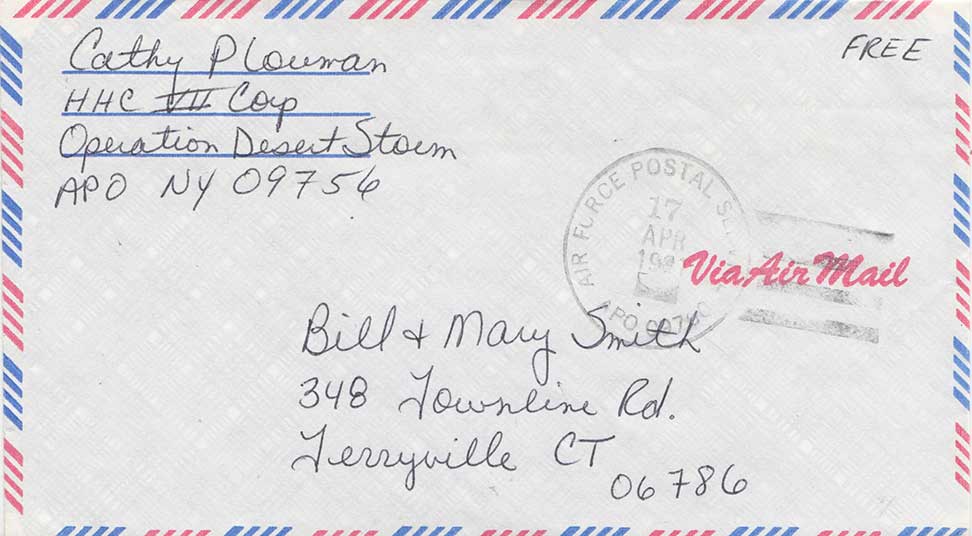 Cathy Plouman
HHC VII Corp
Operation Desert Storm
APO NY 09756
FREE
AIR FORCE POSTAL
17
APR
Via Air Mail
APO
Bill + Mary Smith
348 Townline Rd.
Terryville CT
06786